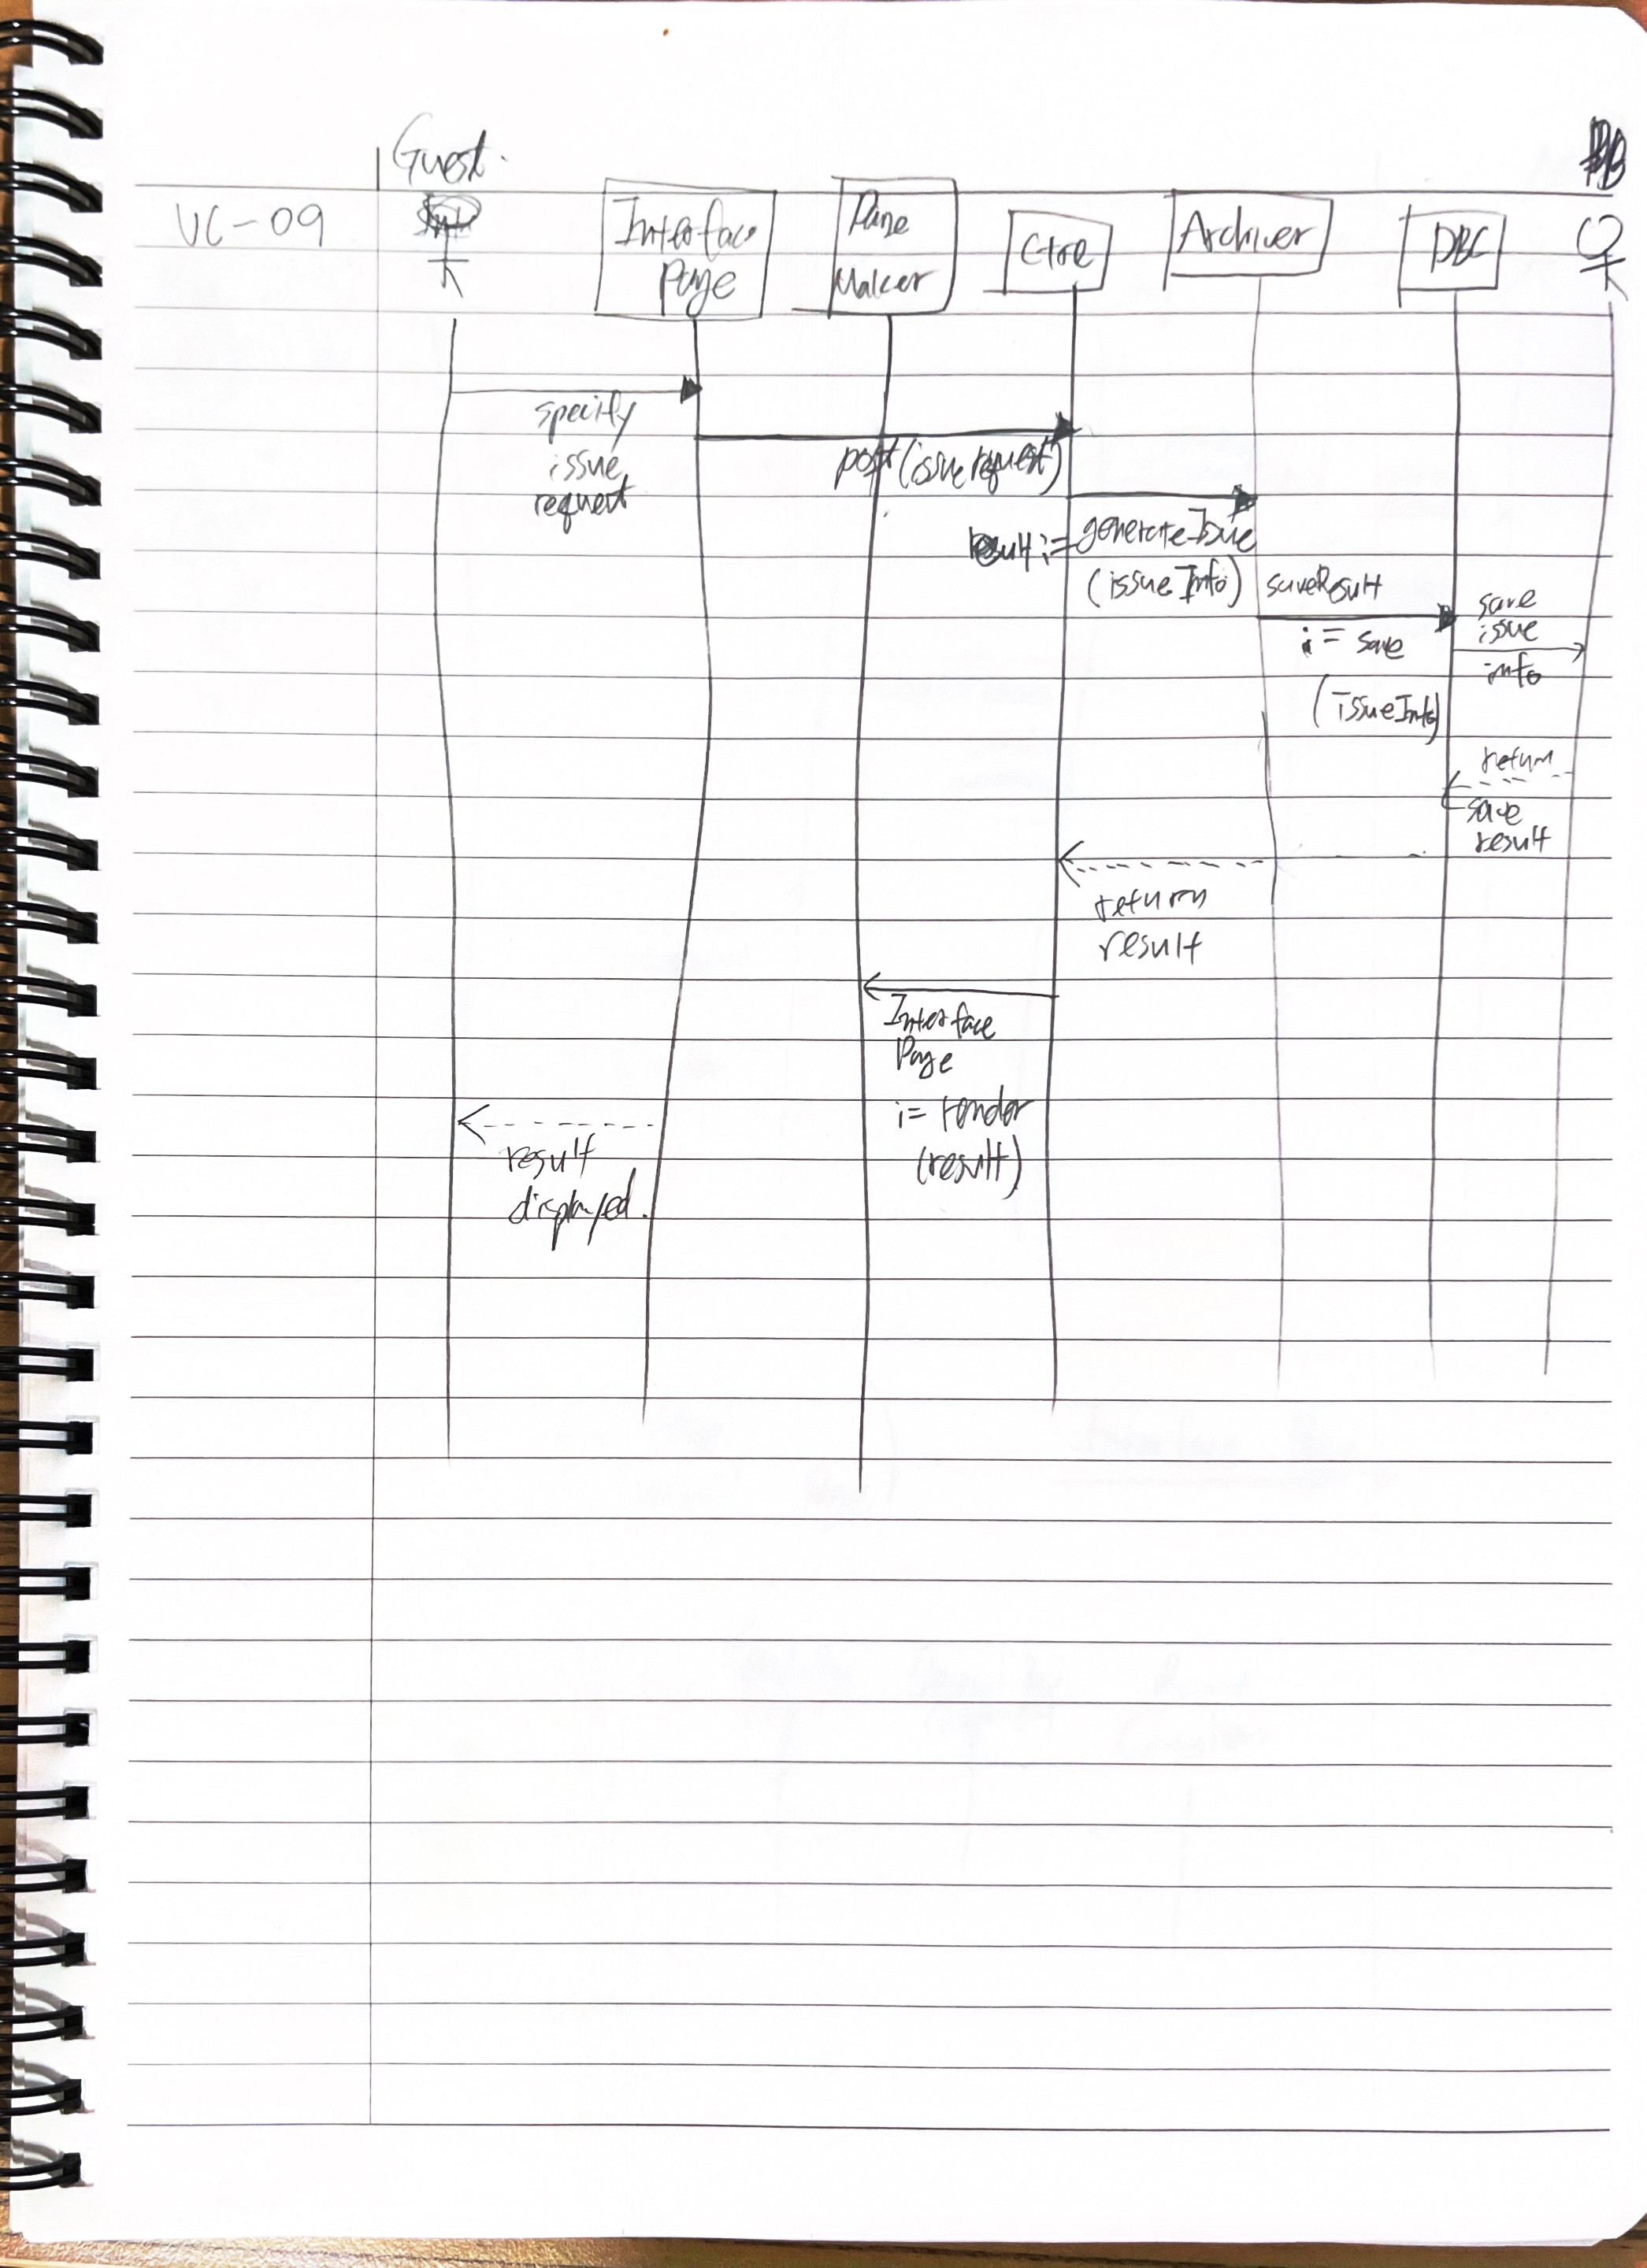 Guest.
UC-09
Interface
Page
Page
Maker
Ctrl
Archiver
DBC
specify
issue
request
post(issue request)
result := generateIssue
(issueInfo)
saveResult
:= save
(issueInfo)
save
issue
info
return
save
result
return
result
Interface
Page
:= render
(result)
result
displayed.